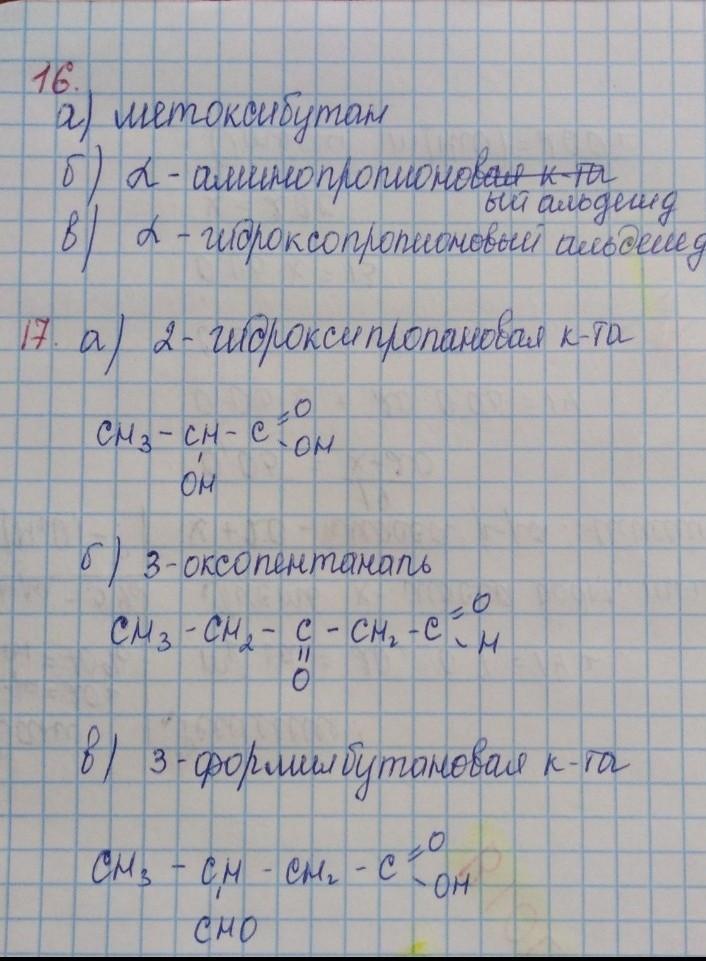 16.
а) метоксибутан
б) α - аминопропионовая к-та
ый альдегид
в) α - гидроксопропионовый альдегид
17. а) 2 - гидроксипропановая к-та
CH3 - CH - C =O
- OH
OH
б) 3-оксопентаналь
CH3 - CH2 - C - CH2 - C =O
- H
O
в) 3-формилбутановая к-та
CH3 - CH - CH2 - C =O
- OH
CHO